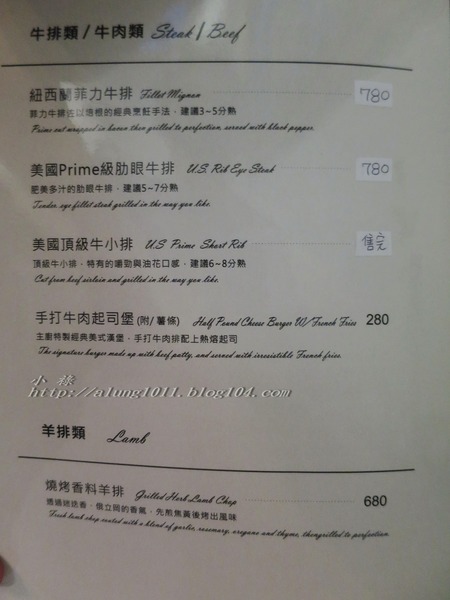 牛排類 / 牛肉類 Steak / Beef
紐西蘭菲力牛排 Fillet Mignon 780
菲力牛排佐以培根的經典烹飪手法，建議3~5分熟
Prime cut wrapped in bacon then grilled to perfection, served with black pepper.
美國Prime級肋眼牛排 U.S. Rib Eye Steak 780
肥美多汁的肋眼牛排，建議5~7分熟
Tender, eye fillet steak grilled in the way you like.
美國頂級牛小排 U.S Prime Short Rib 售完
頂級牛小排，特有的嚼勁與油花口感，建議6~8分熟
Cut from beef sirloin and grilled in the way you like.
手打牛肉起司堡 (附/ 薯條) Half Pound Cheese Burger W/ French Fries 280
主廚特製經典美式漢堡，手打牛肉排配上熱熔起司
The signature burger made up with beef patty, and served with irresistible French fries.
小 緣
http://alung1011.blog104.com/
羊排類 Lamb
燒烤香料羊排 Grilled Herb Lamb Chop 680
透過迷迭香，俄立岡的香氣，先煎焦黃後烤出風味
Fresh lamb chop coated with a blend of garlic, rosemary, oregano and thyme, then grilled to perfection.